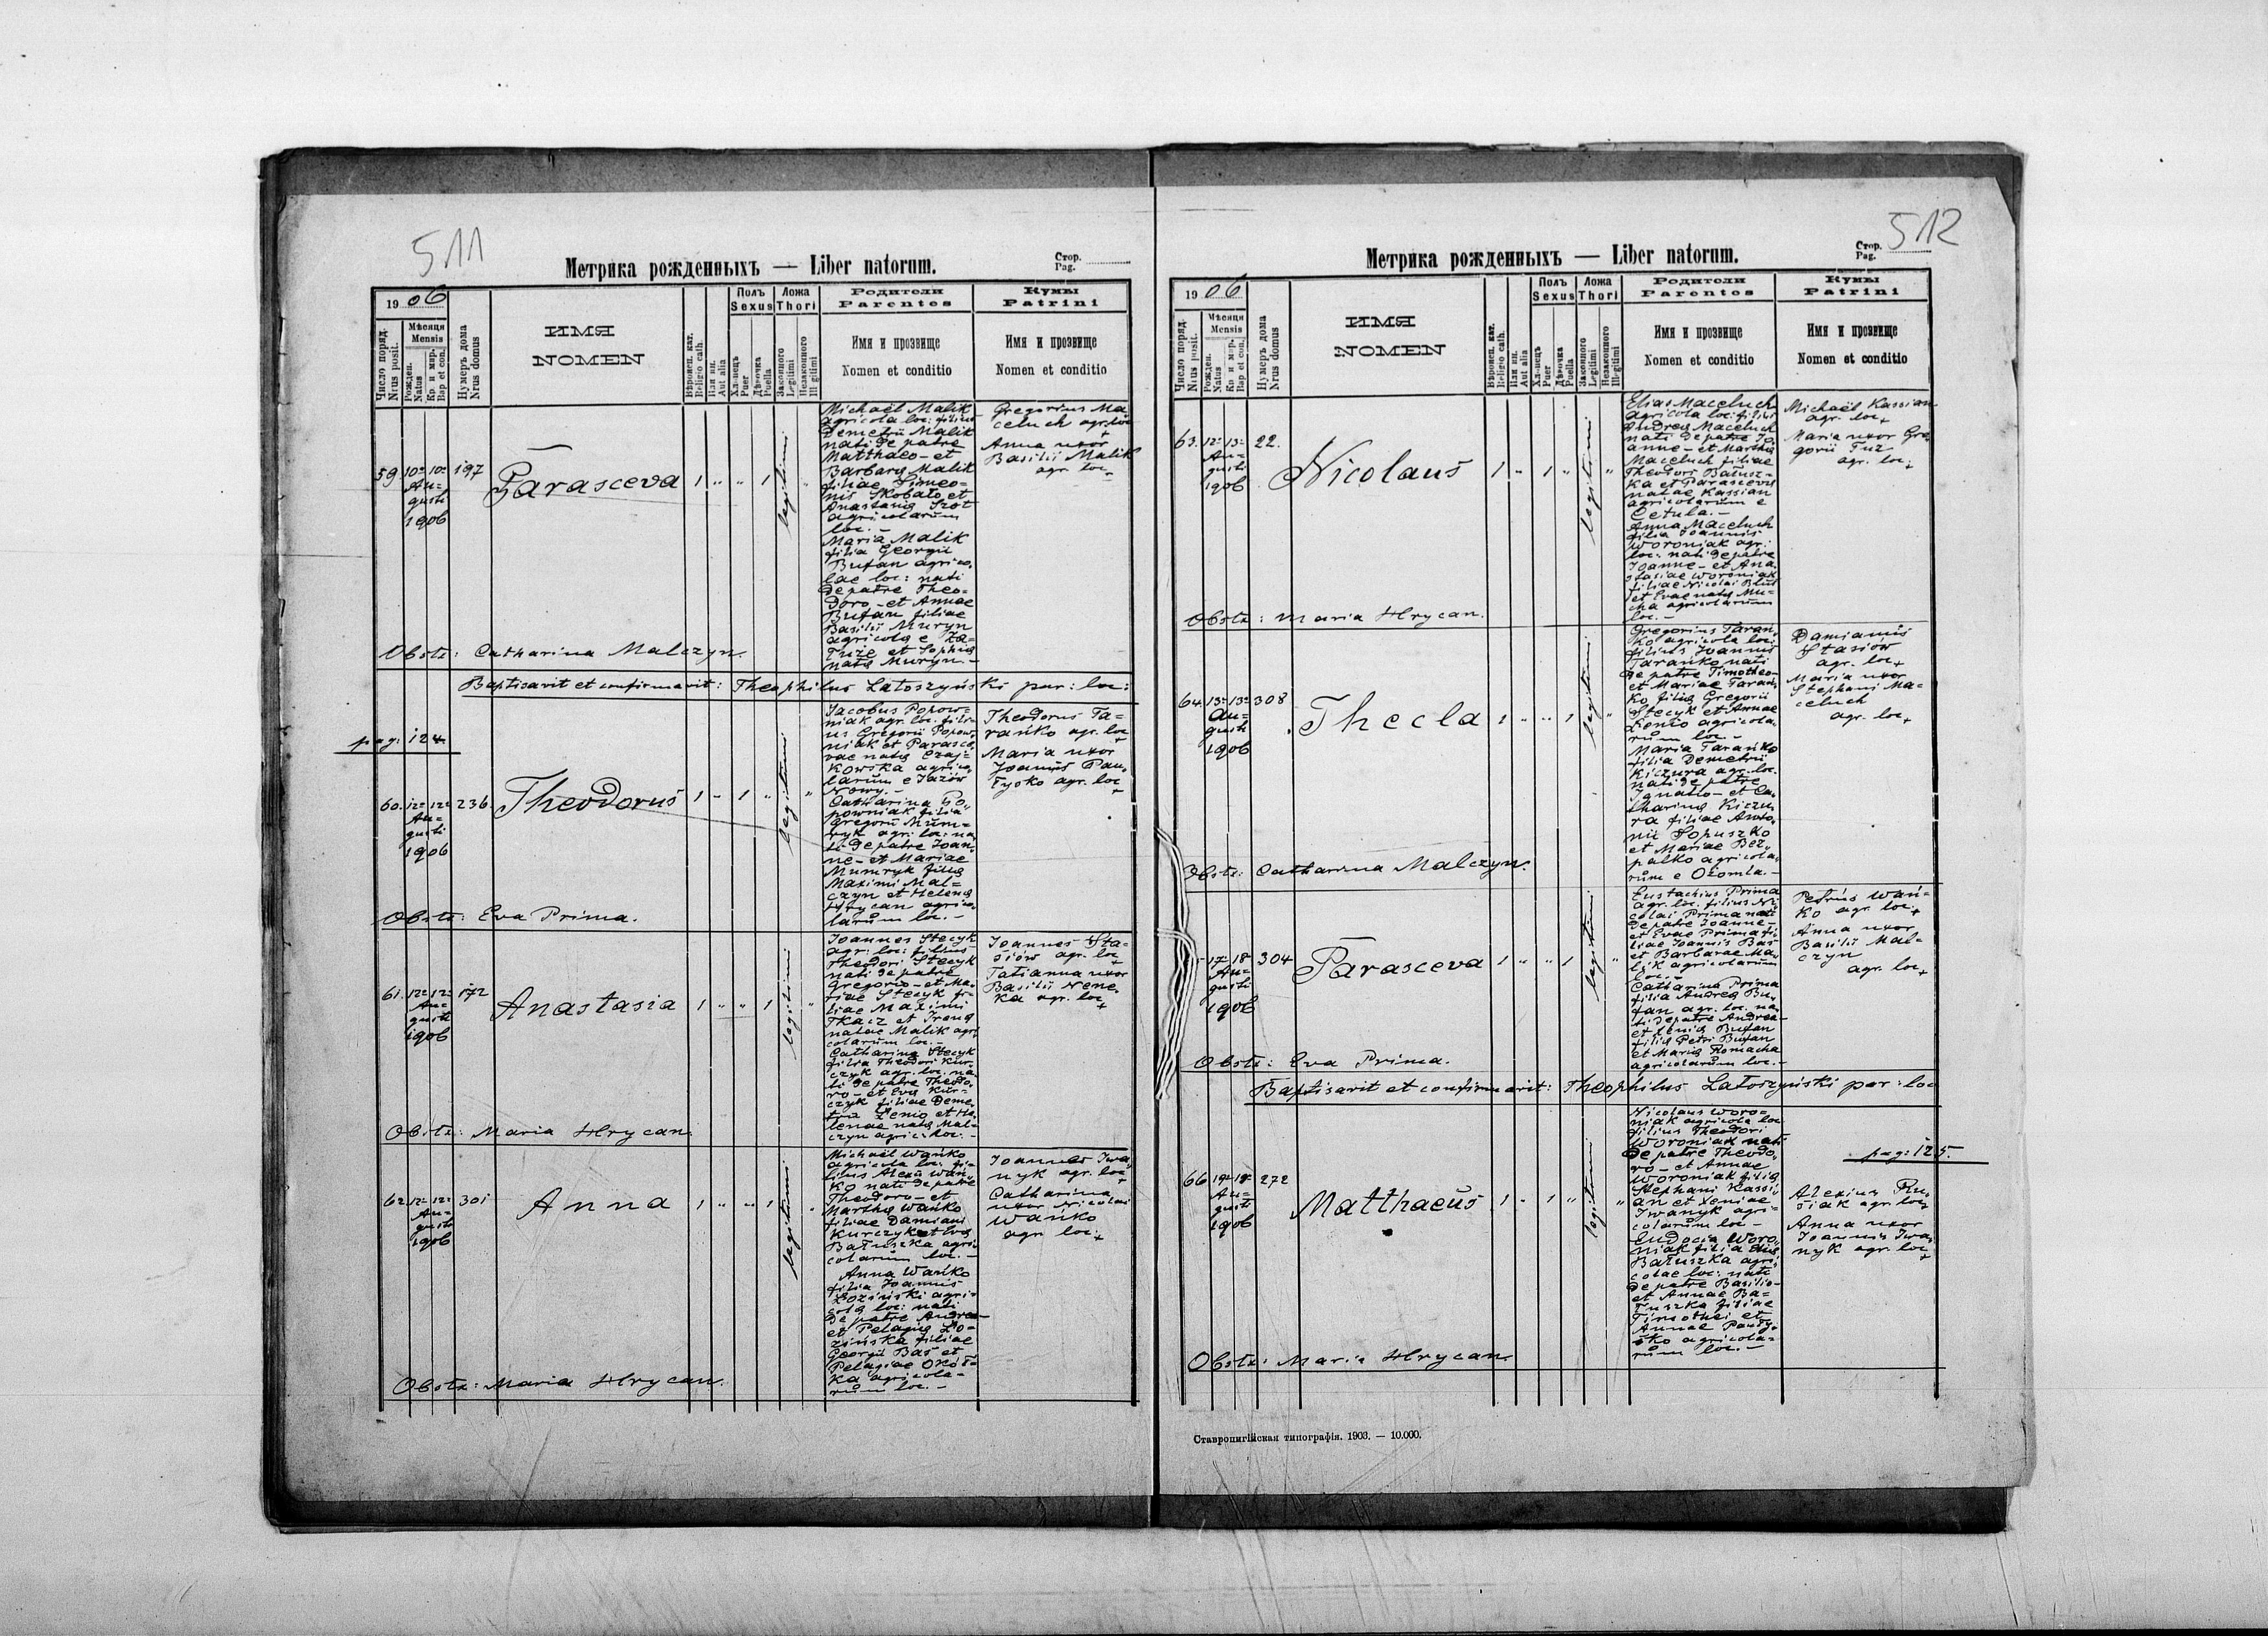 511
Метрика рожденныхъ — Liber natorum.
Стор.
Pag.
1906
Число поряд.
Nrus posit.
Мѣсяця
Mensis
Рожден.
Natus
Кр. и мѵр.
Bap et con.
Нумеръ дома
Nrus domus
ИМЯ
NOMEN
Вѣроисп. кат.
Religio cath.
Или ин.
Aut alia
Полъ
Sexus
Хлопецъ
Puer
Дѣвочка
Puella
Ложа
Thori
Законного
Legitimi
Незаконного
Illegitimi
Родители
Parentes
Имя и прозвище
Nomen et conditio
Кумы
Patrini
Имя и прозвище
Nomen et conditio
59. 10- 10- 197
Au=
gusti
1906
Parasceva 1 " " 1 legitimi "
Michaël Malik
agricola loc: filius
Demetrii Malik
nati de patre
Matthaeo - et
Barbara Malik
filiae Simeo=
nis Skobało et
Anastasia Szot
agricolarum
loc. -
Maria Malik
filia Georgii
Bufan agrico,
lae loc: nati
de patre Theo=
doro - et Annae
Bufan filiae
Basilii Muryn
agricola e Za=
łuże et Sophia
nata Muryn. -
Gregorius Ma=
celuch agr. loc
+
Anna uxor
Basilii Malik
agr. loc.
Obstx: Catharina Malczyn.
Baptisavit et confirmavit: Theophilus Latoszyński par: loc:
pag: 124
60. 12- 12- 236.
Au=
gusti
1906
Theodorus 1 - 1 " legitimi "
Jacobus Popow=
niak agr. loc. fili=
us Gregorii Popow,
niak et Parasce,
vae nata Czaj=
kowska agrico,
larum e Jazów
Nowy. -
Catharina Po,
powniak filia
Gregorii Mum=
ryk agr. loc: na
ti de patre Joan,
ne - et Mariae
Mumryk filia
Maximi Mal=
czyn et Helena
Hrycan agrico,
larum loc. -
Theodorus Ta=
rańko agr. loc
+
Maria uxor
Joannis Pau,
łysko agr. loc
+
Obstx: Eva Prima.
61. 12- 12- 172
Au=
gusti
1906
Anastasia 1 " " 1 legitimi "
Joannes Stecyk
agr: loc: filius
Theodori Stecyk
nati de patre
Gregorio - et Ma,
riae Stecyk fi=
liae Maximi
Tkacz et Irena
natae Malik agri
colarum loc. -
Catharina Stecyk
filia Theodori Kur=
czyk agr. loc. na
ti de patre Theodo,
ro - et Eva Kur=
czyk filiae Deme,
trii Zenio et He,
lenae nata Mal=
czyn agric. loc. -
Joannes Sta=
siów agr. loc
+
Tatianna uxor
Basilii Nene,
ka agr. loc
+
Obstx: Maria Hrycan.
62. 12- 12- 301
Au=
gusti
1906
Anna 1 " " 1 legitimi "
Michaël Wańko
agricola loc: fi=
lius Alexii Wań,
ko nati de patre
Theodoro - et
Martha Wańko
filiae Damiani
Kurczyk et Eva
Batuszka agri,
colarum loc. -
Anna Wańko
filia Joannis
Łoziński agri=
cola loc: nati
de patre Andrea -
et Pelagia Ło=
zińska filiae
Georgii Bas et
Pelagiae
ka agricola=
rum loc. -
Joannes Iwa,
nyk agr. loc
+
Catharina
uxor Nicolai
Wańko
agr. loc.
+
Obstx: Maria Hrycan.
512
Метрика рожденныхъ — Liber natorum.
Стор.
Pag.
1906
Число поряд.
Nrus posit.
Мѣсяця
Mensis
Рожден.
Natus
Кр. и мѵр.
Bap et con.
Нумеръ дома
Nrus domus
ИМЯ
NOMEN
Вѣроисп. кат.
Religio cath.
Или ин.
Aut alia
Полъ
Sexus
Хлопецъ
Puer
Дѣвочка
Puella
Ложа
Thori
Законного
Legitimi
Незаконного
Illegitimi
Родители
Parentes
Имя и прозвище
Nomen et conditio
Кумы
Patrini
Имя и прозвище
Nomen et conditio
63. 12- 13- 22.
Au=
gusti
1906
Nicolaus 1 " 1 " legitimi "
Elias Maceluch
agricola loc: filius
Andrea Maceluch
nati de patre Jo,
anne - et Martha
Maceluch filiae
Theodori Batusz=
ka et Parasceva
natae Kassian
agricolarum e
Cetula. -
Anna Maceluch
filia Joannis
Woroniak agr:
loc: nati de patre
Joanne - et Ana,
stasiae Woroniak
filiae Nicolai
et Evae nata Mu=
cha agricolarum
loc. -
Michaël Kassian
agr. loc.
+
Maria uxor Gre,
gorii Fuz
agr. loc.
+
Obstx: Maria Hrycan.
64. 13- 13- 308
Au=
gusti
1906
Thecla 1 " " 1 legitimi "
Gregorius Taran,
ko agricola loc:
filius Joannis
Tarańko nati
de patre Timotheo -
et Mariae Tarań,
ko filia Gregorii
Stecyk et Annae
Zenio agricola,
rum loc. -
Maria Tarańko
filia Demetrii
Kiczura agr. loc.
nati de patre
Ignatio - et Ca,
tharina Kiczu,
ra filiae Anto,
nii Sopuszko
et Mariae Bez,
palko agricola,
rum e Ożomla. -
Damianus
Stasiów
agr. loc.
+
Maria uxor
Stephani Ma=
celuch
agr. loc.
+
Obstx: Catharina Malczyn.
17- 18- 304
Au=
gusti
1906
Parasceva 1 " " 1 legitimi "
Eustachius Prima
agr. loc. filius Ni,
colai Prima nati
de patre Joanne -
et Evae Prima fi,
liae Joannis Bas
et Barbarae Ma,
lik agricolarum
loc. -
Catharina Prima
filia Andrea Bu,
fan agr. loc. na
ti de patre Andrea -
et Xenia Bufan
filia Petri Bufan
et Maria Romacha
agricolarum loc. -
Petrus Wań=
ko agr. loc.
+
Anna uxor
Basilii Mal=
czyn
agr. loc.
+
Obstx: Eva Prima.
Baptisavit et confirmavit: Theophilus Latoszyński par: loc
pag: 125.
66 19- 19- 272
Au=
gusti
1906
Matthaeus 1 " 1 " legitimi "
Nicolaus Woro=
niak agricola loc
filius Theodori
Woroniak nati
de patre Theodo,
ro - et Annae
Woroniak filia
Stephani Kassi,
an et Xeniae
Iwanyk agri=
colarum loc -
Eudocia Woro,
niak filia Elia
Batuszka agri,
colae loc: nati
de patre Basilio -
et Annae Ba=
tuszka filiae
Timothei et
Annae Pauły,
sko agricola=
rum loc. -
Alexius Ru,
siak agr. loc
+
Anna uxor
Joannis Iwa,
nyk agr. loc
+
Obstx: Maria Hrycan.
Ставропигійская типографія. 1903. — 10.000.